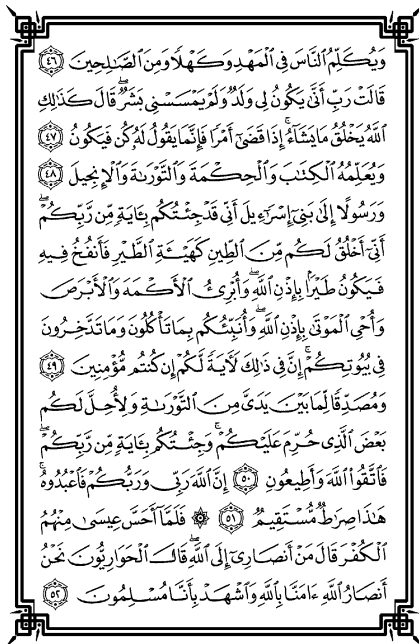 وَيُكَلِّمُ النَّاسَ فِي الْمَهْدِ وَكَهْلًا وَمِنَ الصَّـٰلِحِينَ ﴿٤٦﴾
قَالَتْ رَبِّ أَنَّىٰ يَكُونُ لِي وَلَدٌ وَلَمْ يَمْسَسْنِي بَشَرٌ ۖ قَالَ كَذَٰلِكِ
اللَّهُ يَخْلُقُ مَا يَشَاءُ ۚ إِذَا قَضَىٰ أَمْرًا فَإِنَّمَا يَقُولُ لَهُ كُن فَيَكُونُ ﴿٤٧﴾
وَيُعَلِّمُهُ الْكِتَـٰبَ وَالْحِكْمَةَ وَالتَّوْرَىٰةَ وَالْإِنجِيلَ ﴿٤٨﴾
وَرَسُولًا إِلَىٰ بَنِي إِسْرَٰٓءِيلَ أَنِّي قَدْ جِئْتُكُم بِـَٔايَةٍ مِّن رَّبِّكُمْ ۖ
أَنِّي أَخْلُقُ لَكُم مِّنَ الطِّينِ كَهَيْـَٔةِ الطَّيْرِ فَأَنفُخُ فِيهِ
فَيَكُونُ طَيْرًا بِإِذْنِ اللَّهِ ۖ وَأُبْرِئُ الْأَكْمَهَ وَالْأَبْرَصَ
وَأُحْيِ الْمَوْتَىٰ بِإِذْنِ اللَّهِ ۖ وَأُنَبِّئُكُم بِمَا تَأْكُلُونَ وَمَا تَدَّخِرُونَ
فِي بُيُوتِكُمْ ۚ إِنَّ فِي ذَٰلِكَ لَـَٔايَةً لَّكُمْ إِن كُنتُم مُّؤْمِنِينَ ﴿٤٩﴾
وَمُصَدِّقًا لِّمَا بَيْنَ يَدَيَّ مِنَ التَّوْرَىٰةِ وَلِأُحِلَّ لَكُم
بَعْضَ الَّذِي حُرِّمَ عَلَيْكُمْ ۚ وَجِئْتُكُم بِـَٔايَةٍ مِّن رَّبِّكُمْ
فَاتَّقُوا اللَّهَ وَأَطِيعُونِ ﴿٥٠﴾ إِنَّ اللَّهَ رَبِّي وَرَبُّكُمْ فَاعْبُدُوهُ ۗ
هَـٰذَا صِرَٰطٌ مُّسْتَقِيمٌ ﴿٥١﴾ ۞ فَلَمَّا أَحَسَّ عِيسَىٰ مِنْهُمُ
الْكُفْرَ قَالَ مَنْ أَنصَارِي إِلَى اللَّهِ ۖ قَالَ الْحَوَارِيُّونَ نَحْنُ
أَنصَارُ اللَّهِ ءَامَنَّا بِاللَّهِ وَاشْهَدْ بِأَنَّا مُسْلِمُونَ ﴿٥٢﴾